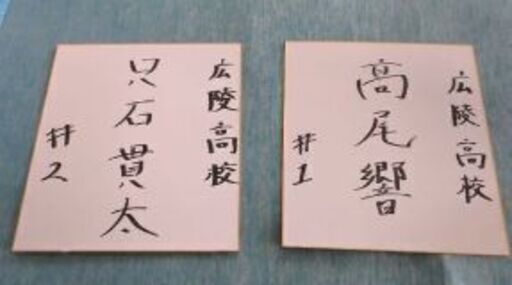 広陵高校
高尾響
#1
広陵高校
只石貫太
#2